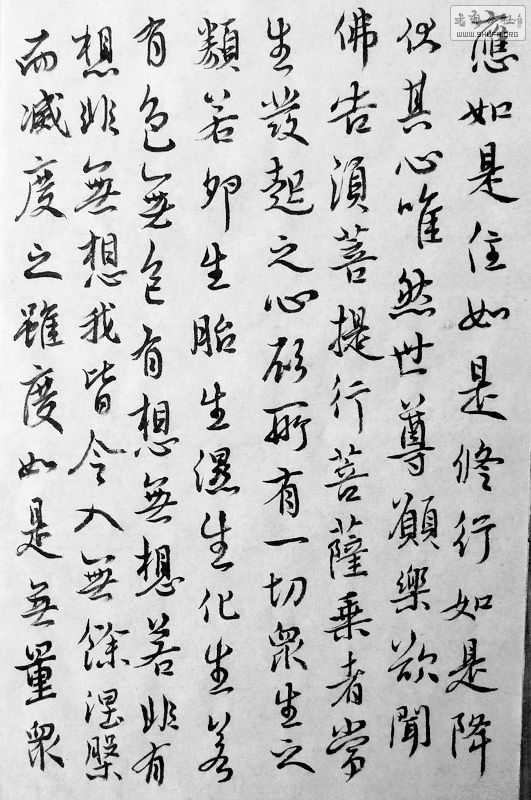 應如是住如是修行如是降
伏其心唯然世尊願樂欲聞
佛告須菩提行菩薩乘者當
生發起之心所所有一切眾生之
類若卵生胎生濕生化生若
有色無色有想無想若非有
想非無想我皆令入無餘涅槃
而滅度之雖度如是無量眾
www.SHUFA.ORG